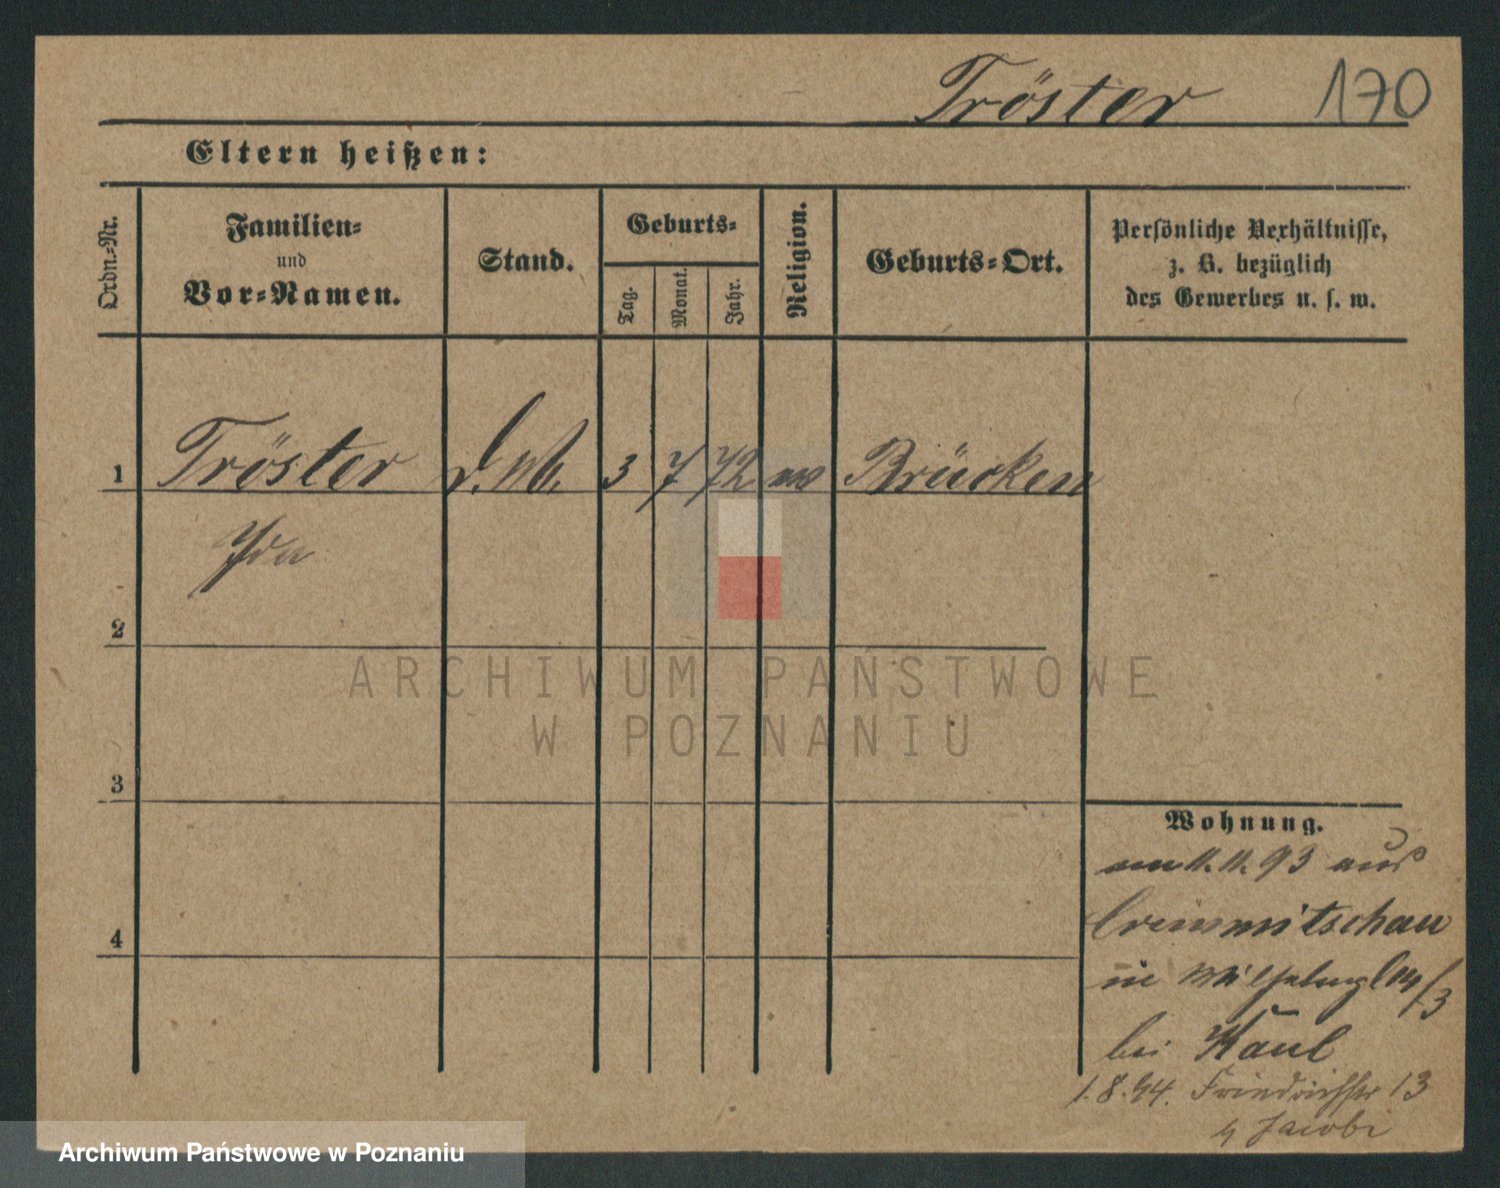 Tröster 170
Eltern heißen:
Ordn.-Nr.
Familien-
und
Vor-Namen.
Stand.
Geburts-
Tag.
Monat.
Jahr.
Religion.
Geburts-Ort.
Persönliche Verhältnisse,
z. B. bezüglich
des Gewerbes u. s. w.
1 Tröster 3 7 72 Brücken
Ida
2
3
4
Wohnung.
am 11.11.93 aus
Crimmitschau
in
bei Kaul
1.8.94. Friedrichstr 13
Jacobi
ARCHIWUM PAŃSTWOWE
W POZNANIU
Archiwum Państwowe w Poznaniu